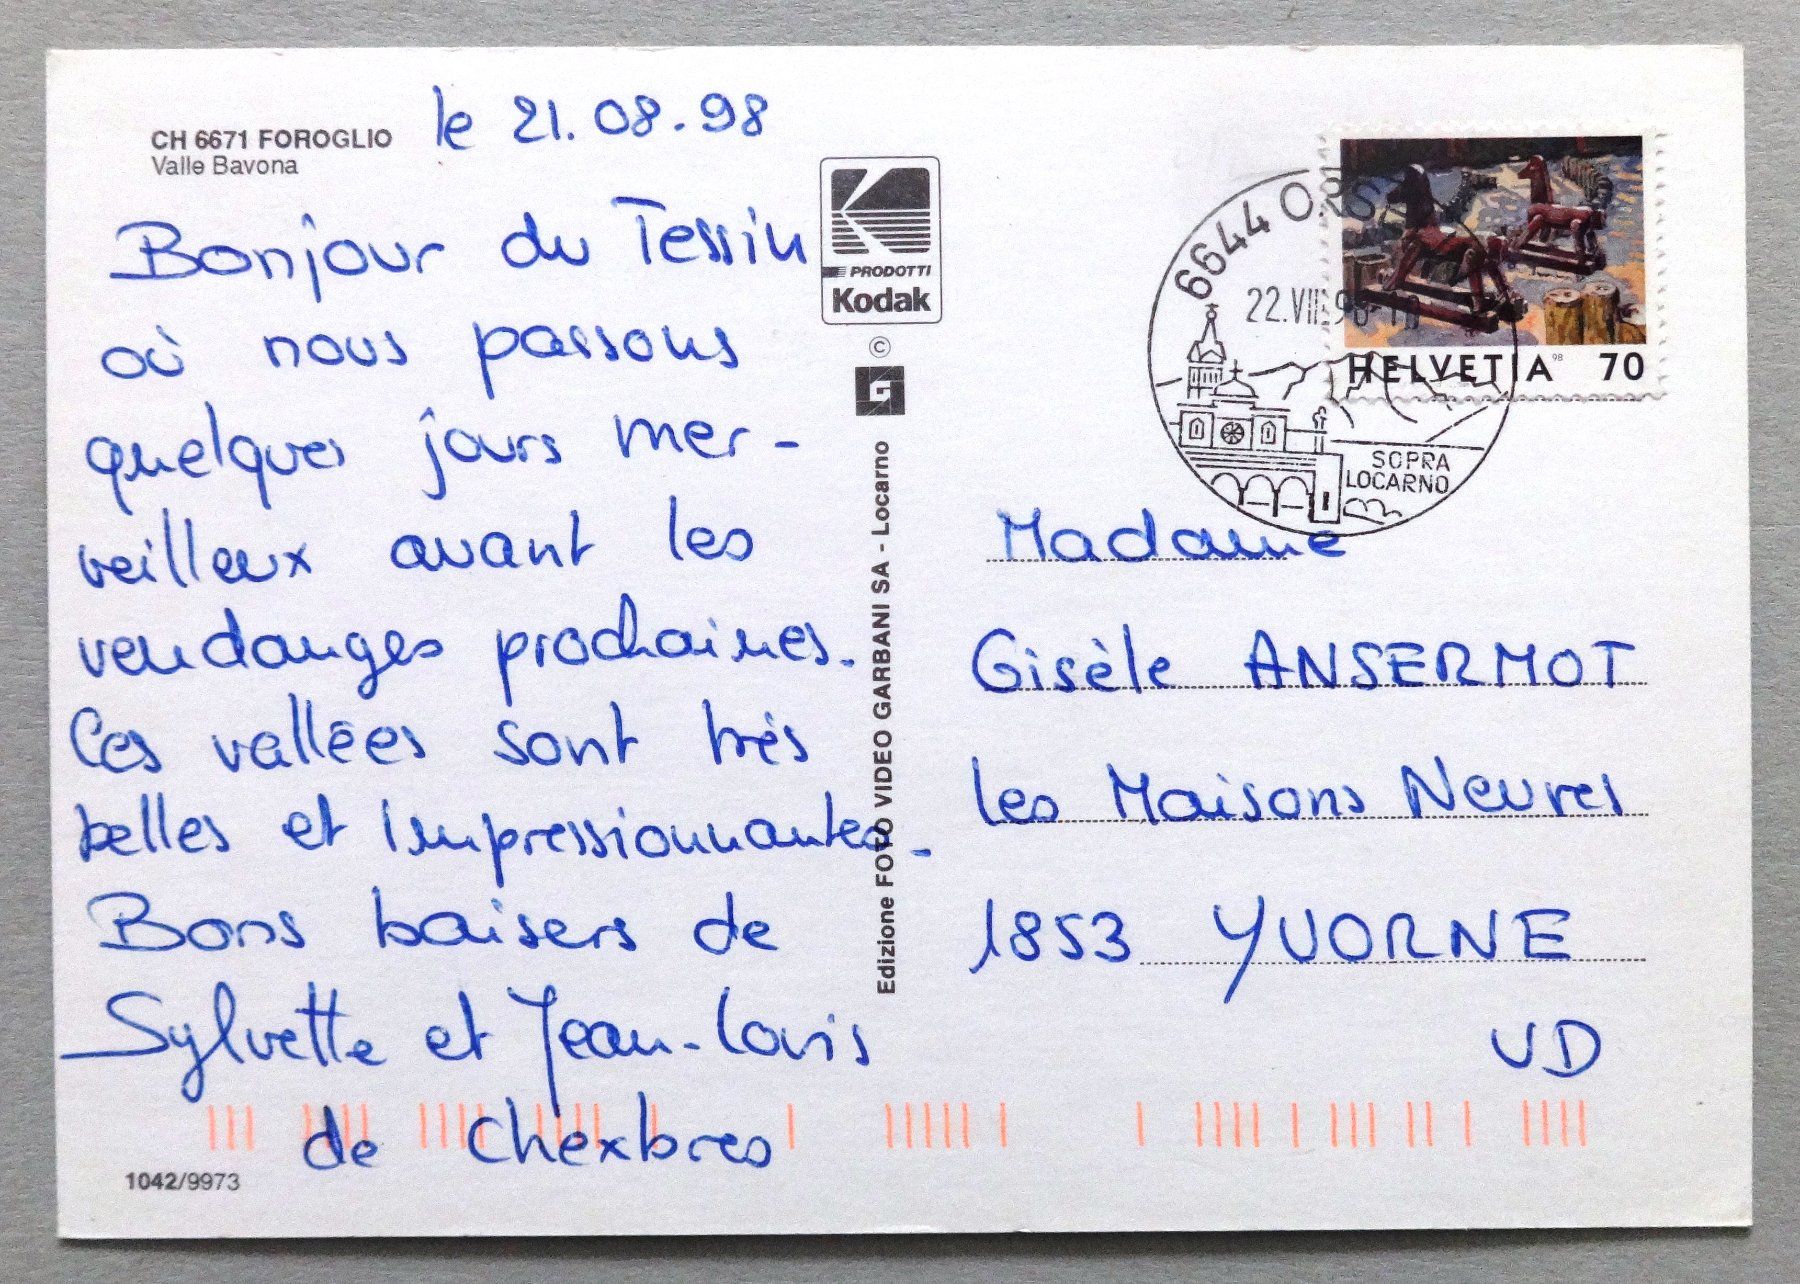 CH 6671 FOROGLIO
Valle Bavona
le 21.08.98
Bonjour du Tessin
où nous passons
quelques jours mer-
veilleux avant les
vendanges prochaines.
Ces vallées sont très
belles et impressionnantes.
Bons baisers de
Sylvette et Jean-Louis
de Chexbres
1042/9973
PRODOTTI
Kodak
©
Edizione FOTO VIDEO GARBANI SA - Locarno
6644 ORS
22.VIII.98
SOPRA
LOCARNO
HELVETIA 98 70
Madame
Gisèle ANSERMOT
les Maisons Neuves
1853 YVORNE
VD